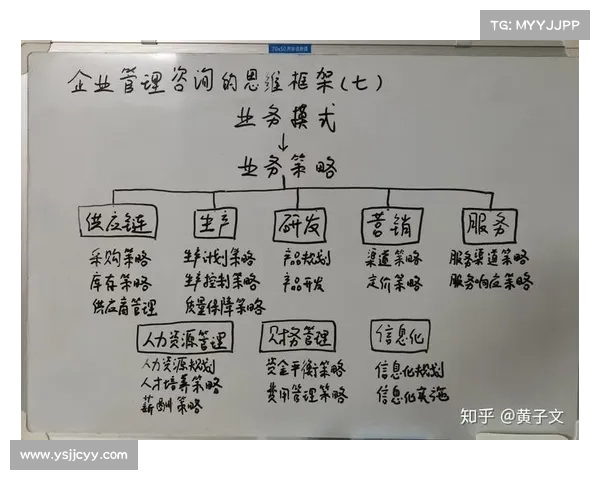 TG: MYYJJPP
企业管理咨询的思维框架(七)
业务模式
↓
业务策略
供应链 生产 研发 营销 服务
采购策略 生产计划策略 产品规划 渠道策略 服务渠道策略
库存策略 生产控制策略 产品开发 定价策略 服务响应策略
供应商管理 质量保障策略
人力资源管理 财务管理 信息化
人力资源规划 资金平衡策略 信息化规划
人才培养策略 费用管理策略 信息化实施
薪酬策略
知乎 @黄子文
www.ysjjcyy.com